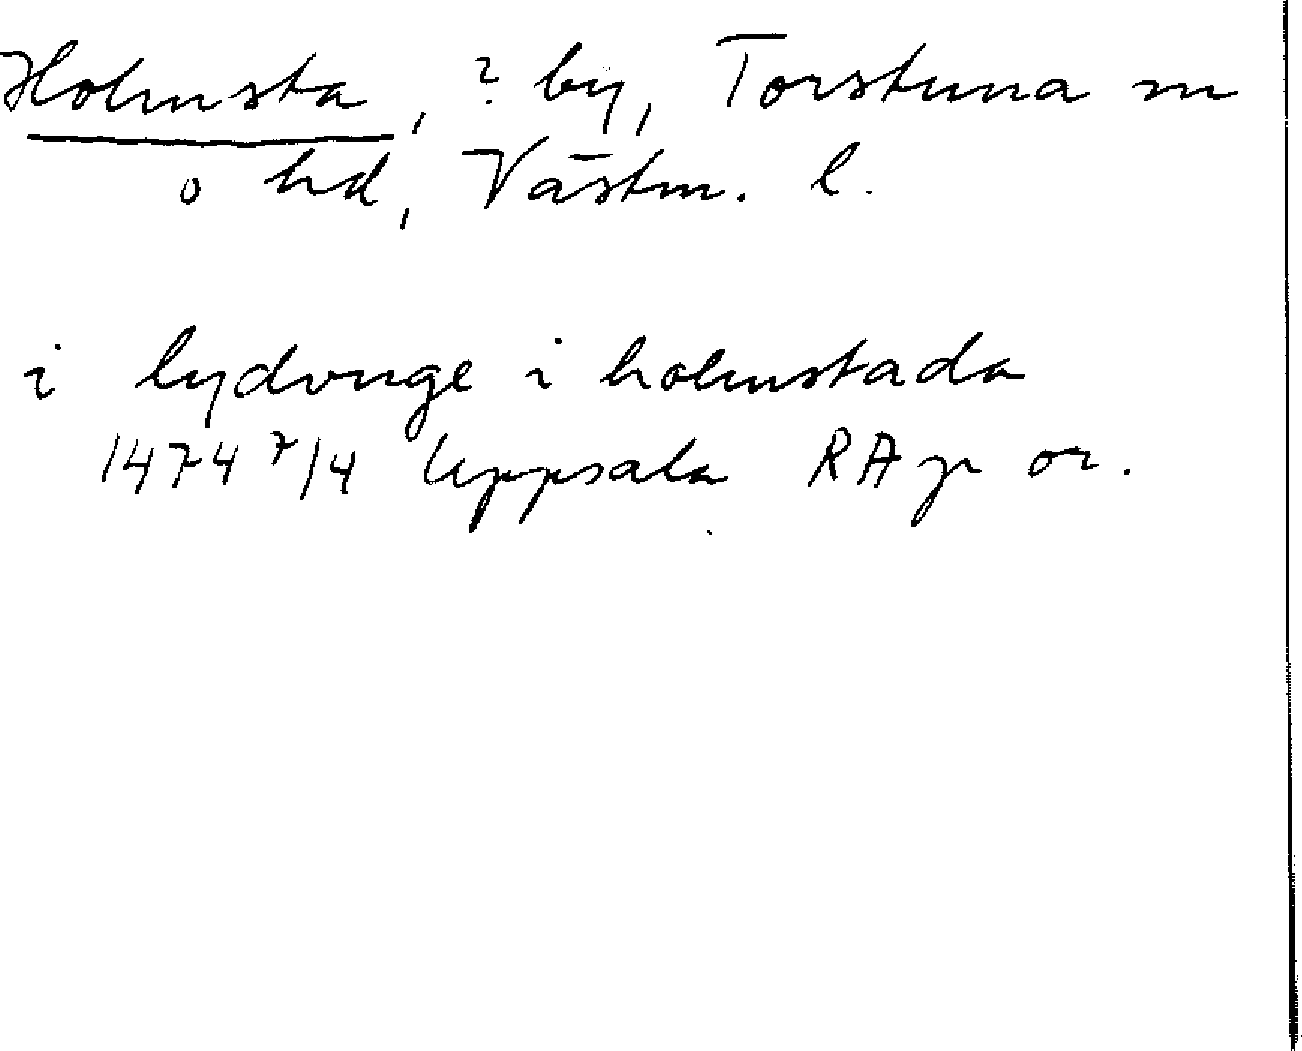 Holmsta, ? by, Torstuna sn
o hd, Västm. l.
i lydvnge i holmstada
1474 7/4 Uppsala RAp or.